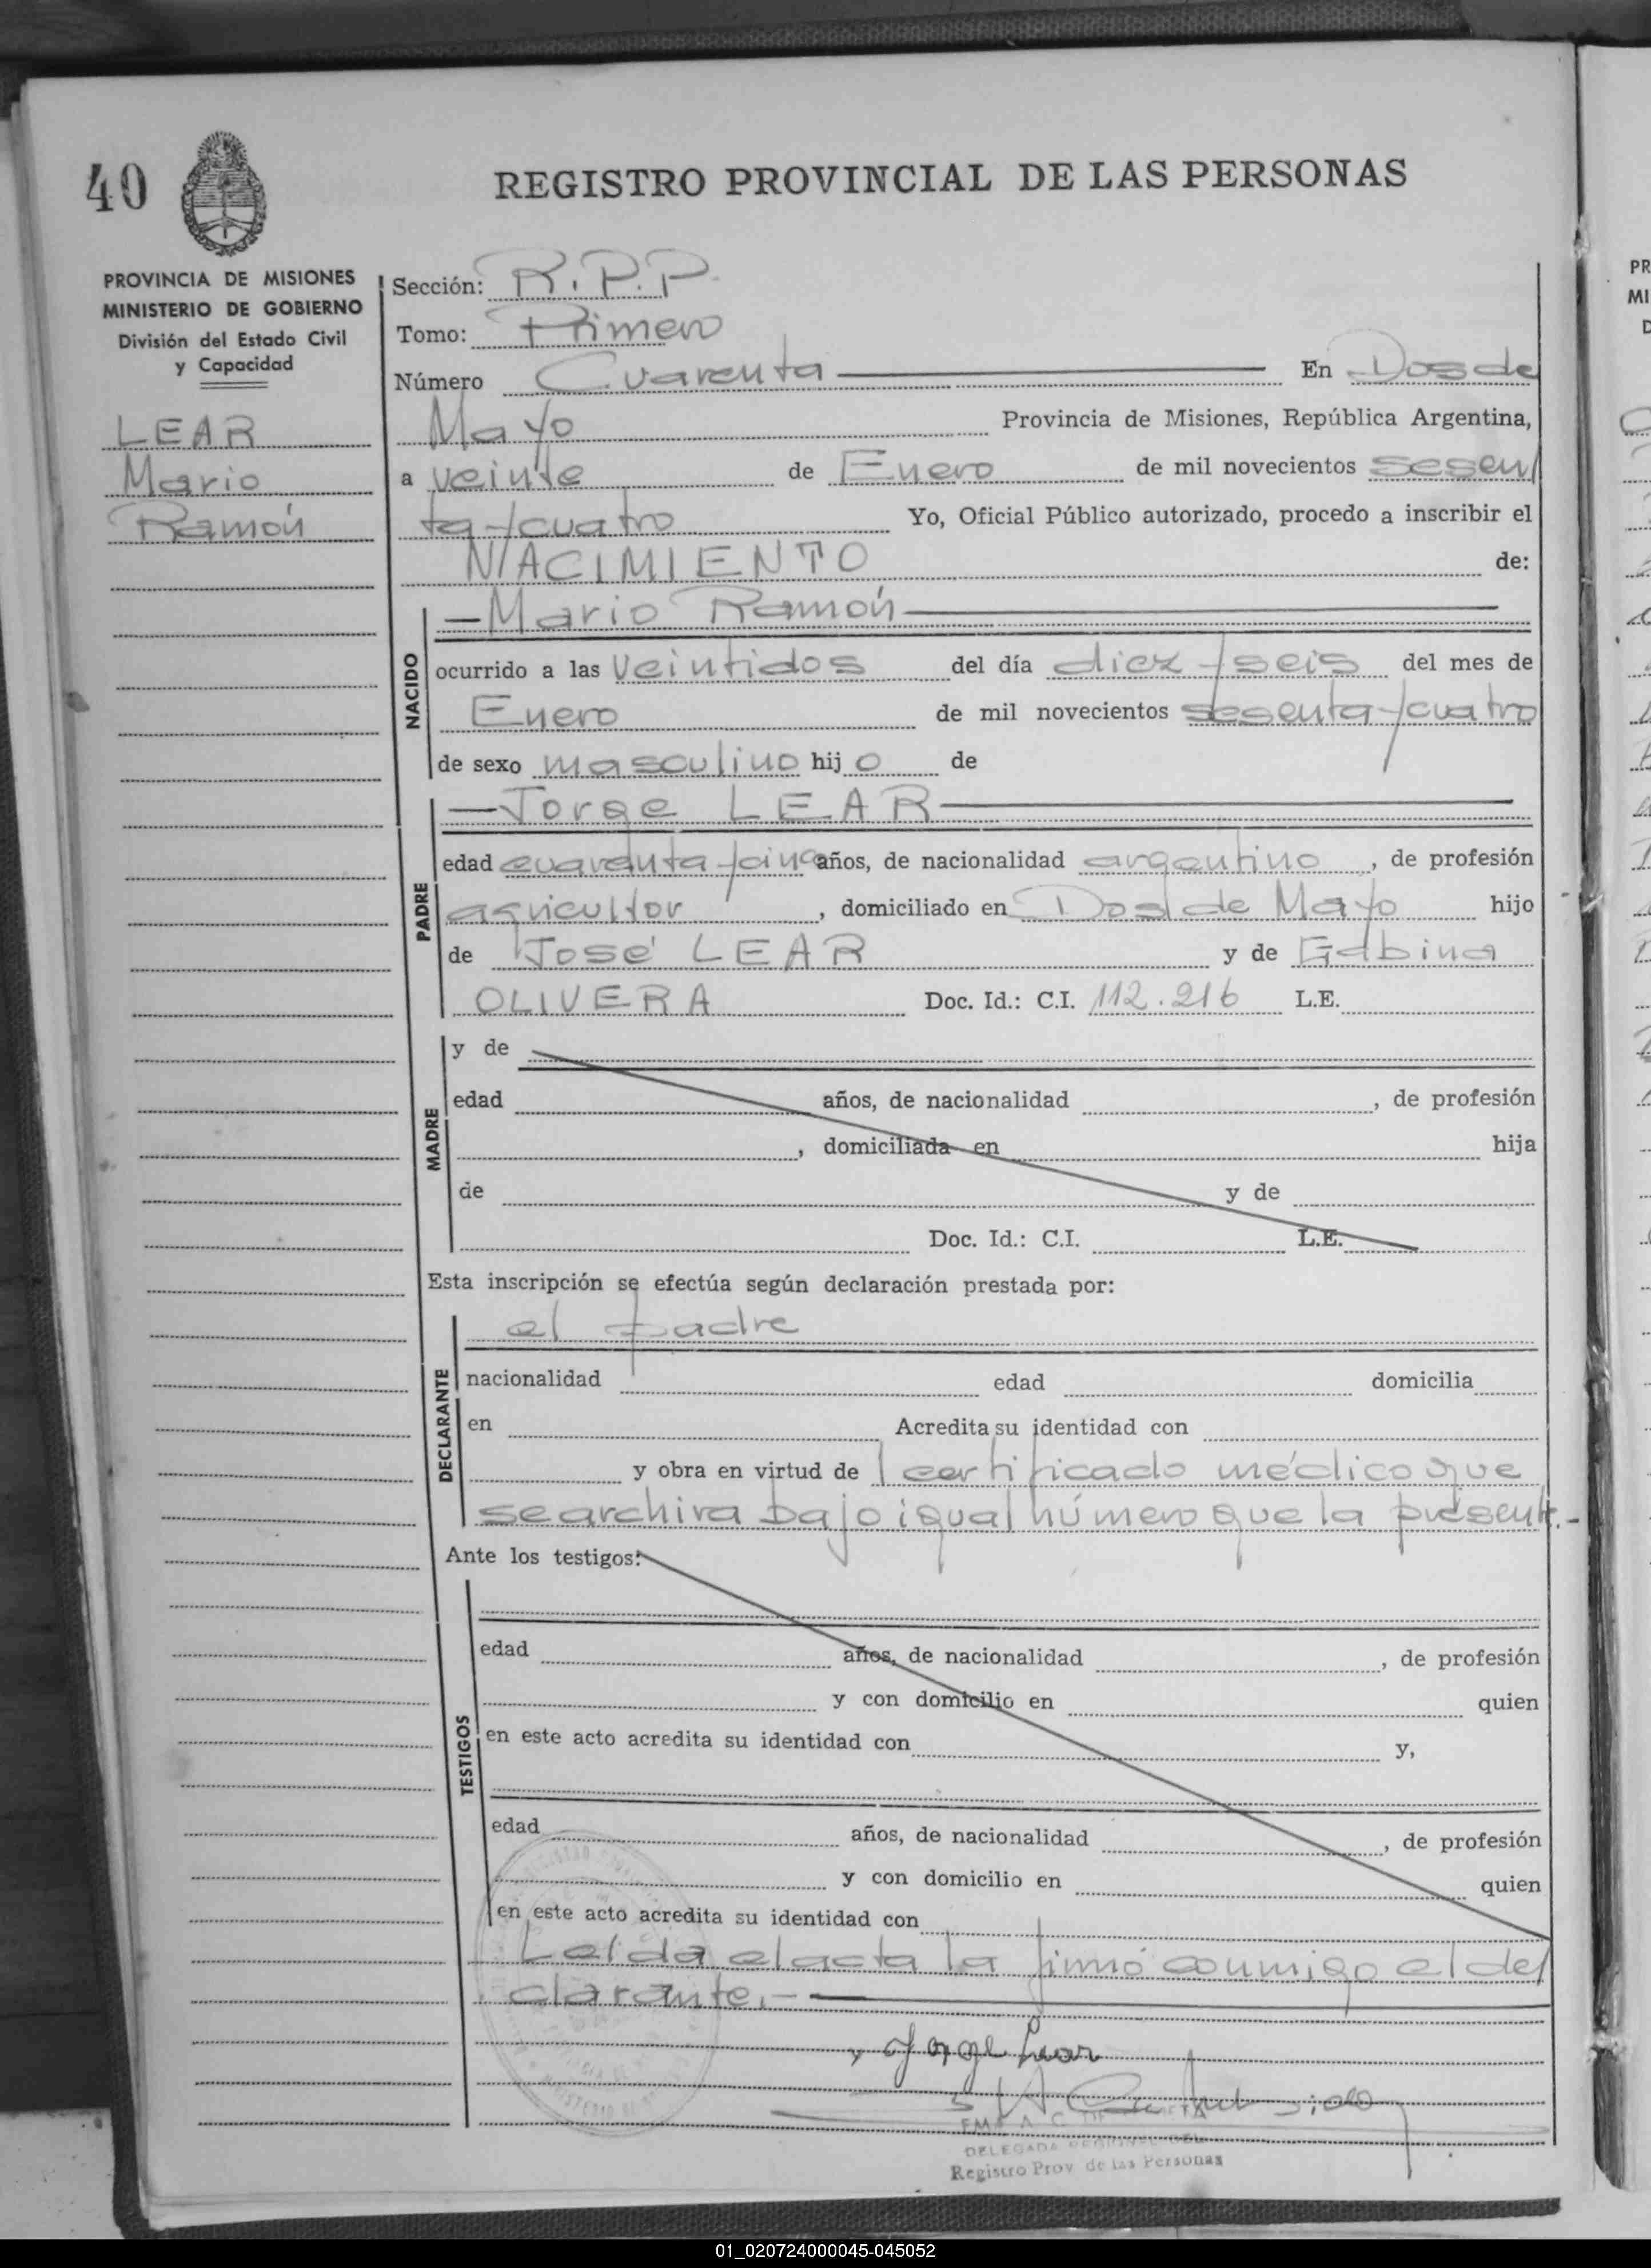 40
REGISTRO PROVINCIAL DE LAS PERSONAS
PROVINCIA DE MISIONES
MINISTERIO DE GOBIERNO
División del Estado Civil
y Capacidad
LEAR
Mario
Ramón
Sección: R.P.P.
Tomo: Primero
Número Cuarenta En Dos de
Mayo Provincia de Misiones, República Argentina,
a veinte de Enero de mil novecientos sesen
ta y cuatro Yo, Oficial Público autorizado, procedo a inscribir el
NACIMIENTO de:
NACIDO
—Mario Ramón
ocurrido a las veintidos del día diez y seis del mes de
Enero de mil novecientos sesenta y cuatro
de sexo masculino hijo de
PADRE
—Jorge LEAR
edad cuarenta y cinco años, de nacionalidad argentino, de profesión
agricultor, domiciliado en Dos de Mayo hijo
de José LEAR y de Gabina
OLIVERA Doc. Id.: C.I. 112.216 L.E.
MADRE
y de
edad años, de nacionalidad , de profesión
, domiciliada en hija
de y de
Doc. Id.: C.I. L.E.
Esta inscripción se efectúa según declaración prestada por:
DECLARANTE
el padre
nacionalidad edad domicilia
en Acredita su identidad con
y obra en virtud de certificado médico que
se archiva bajo igual número que la presente.-
Ante los testigos:
TESTIGOS
edad años, de nacionalidad , de profesión
y con domicilio en quien
en este acto acredita su identidad con y,
edad años, de nacionalidad , de profesión
y con domicilio en quien
en este acto acredita su identidad con
Leída el acta la firmó conmigo el de
clarante.-
Jorge Lear
DELEGADA REGIONAL DEL
Registro Prov de las Personas
PR
MI
D
01_020724000045-045052